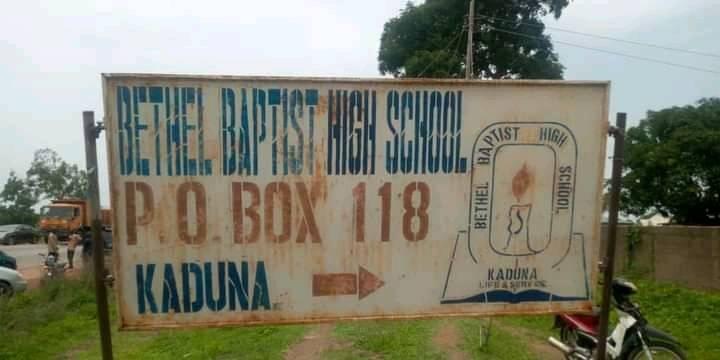 BETHEL BAPTIST HIGH SCHOOL
P.O. BOX 118
KADUNA
BETHEL BAPTIST HIGH SCHOOL
KADUNA
LIFE & SERVICE